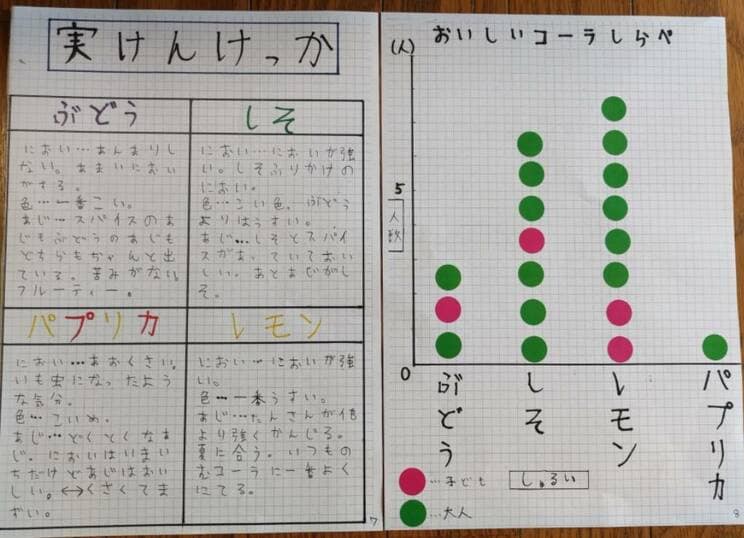 実けんけっか
ぶどう
におい…あんまりし
ない。あまいにおい
がする。
色…一番こい。
あじ…スパイスのあ
じもぶどうのあじも
どちらもちゃんと出
ている。苦みがない。
フルーティー。
しそ
におい…においが強
い。しそふりかけの
におい。
色…こい色。ぶどう
よりはうすい。
あじ…しそとスパイ
スがあっていておい
しい。あとあじがし
そ。
パプリカ
におい…あおくさい。
いも虫になったよう
な気分。
色…こいめ。
あじ…どくとくなあ
じ。においはいまい
ちだけどあじはおい
しい。↔くさくてま
ずい。
レモン
におい…においが強
い。
色…一番うすい。
あじ…たんさんが倍
より強くかんじる。
夏に合う。いつもの
むコーラに一番よく
にてる。
7
おいしいコーラしらべ
(人)
5
人数
0
ぶどう
しそ
レモン
パプリカ
…子ども
しゅるい
…大人
8